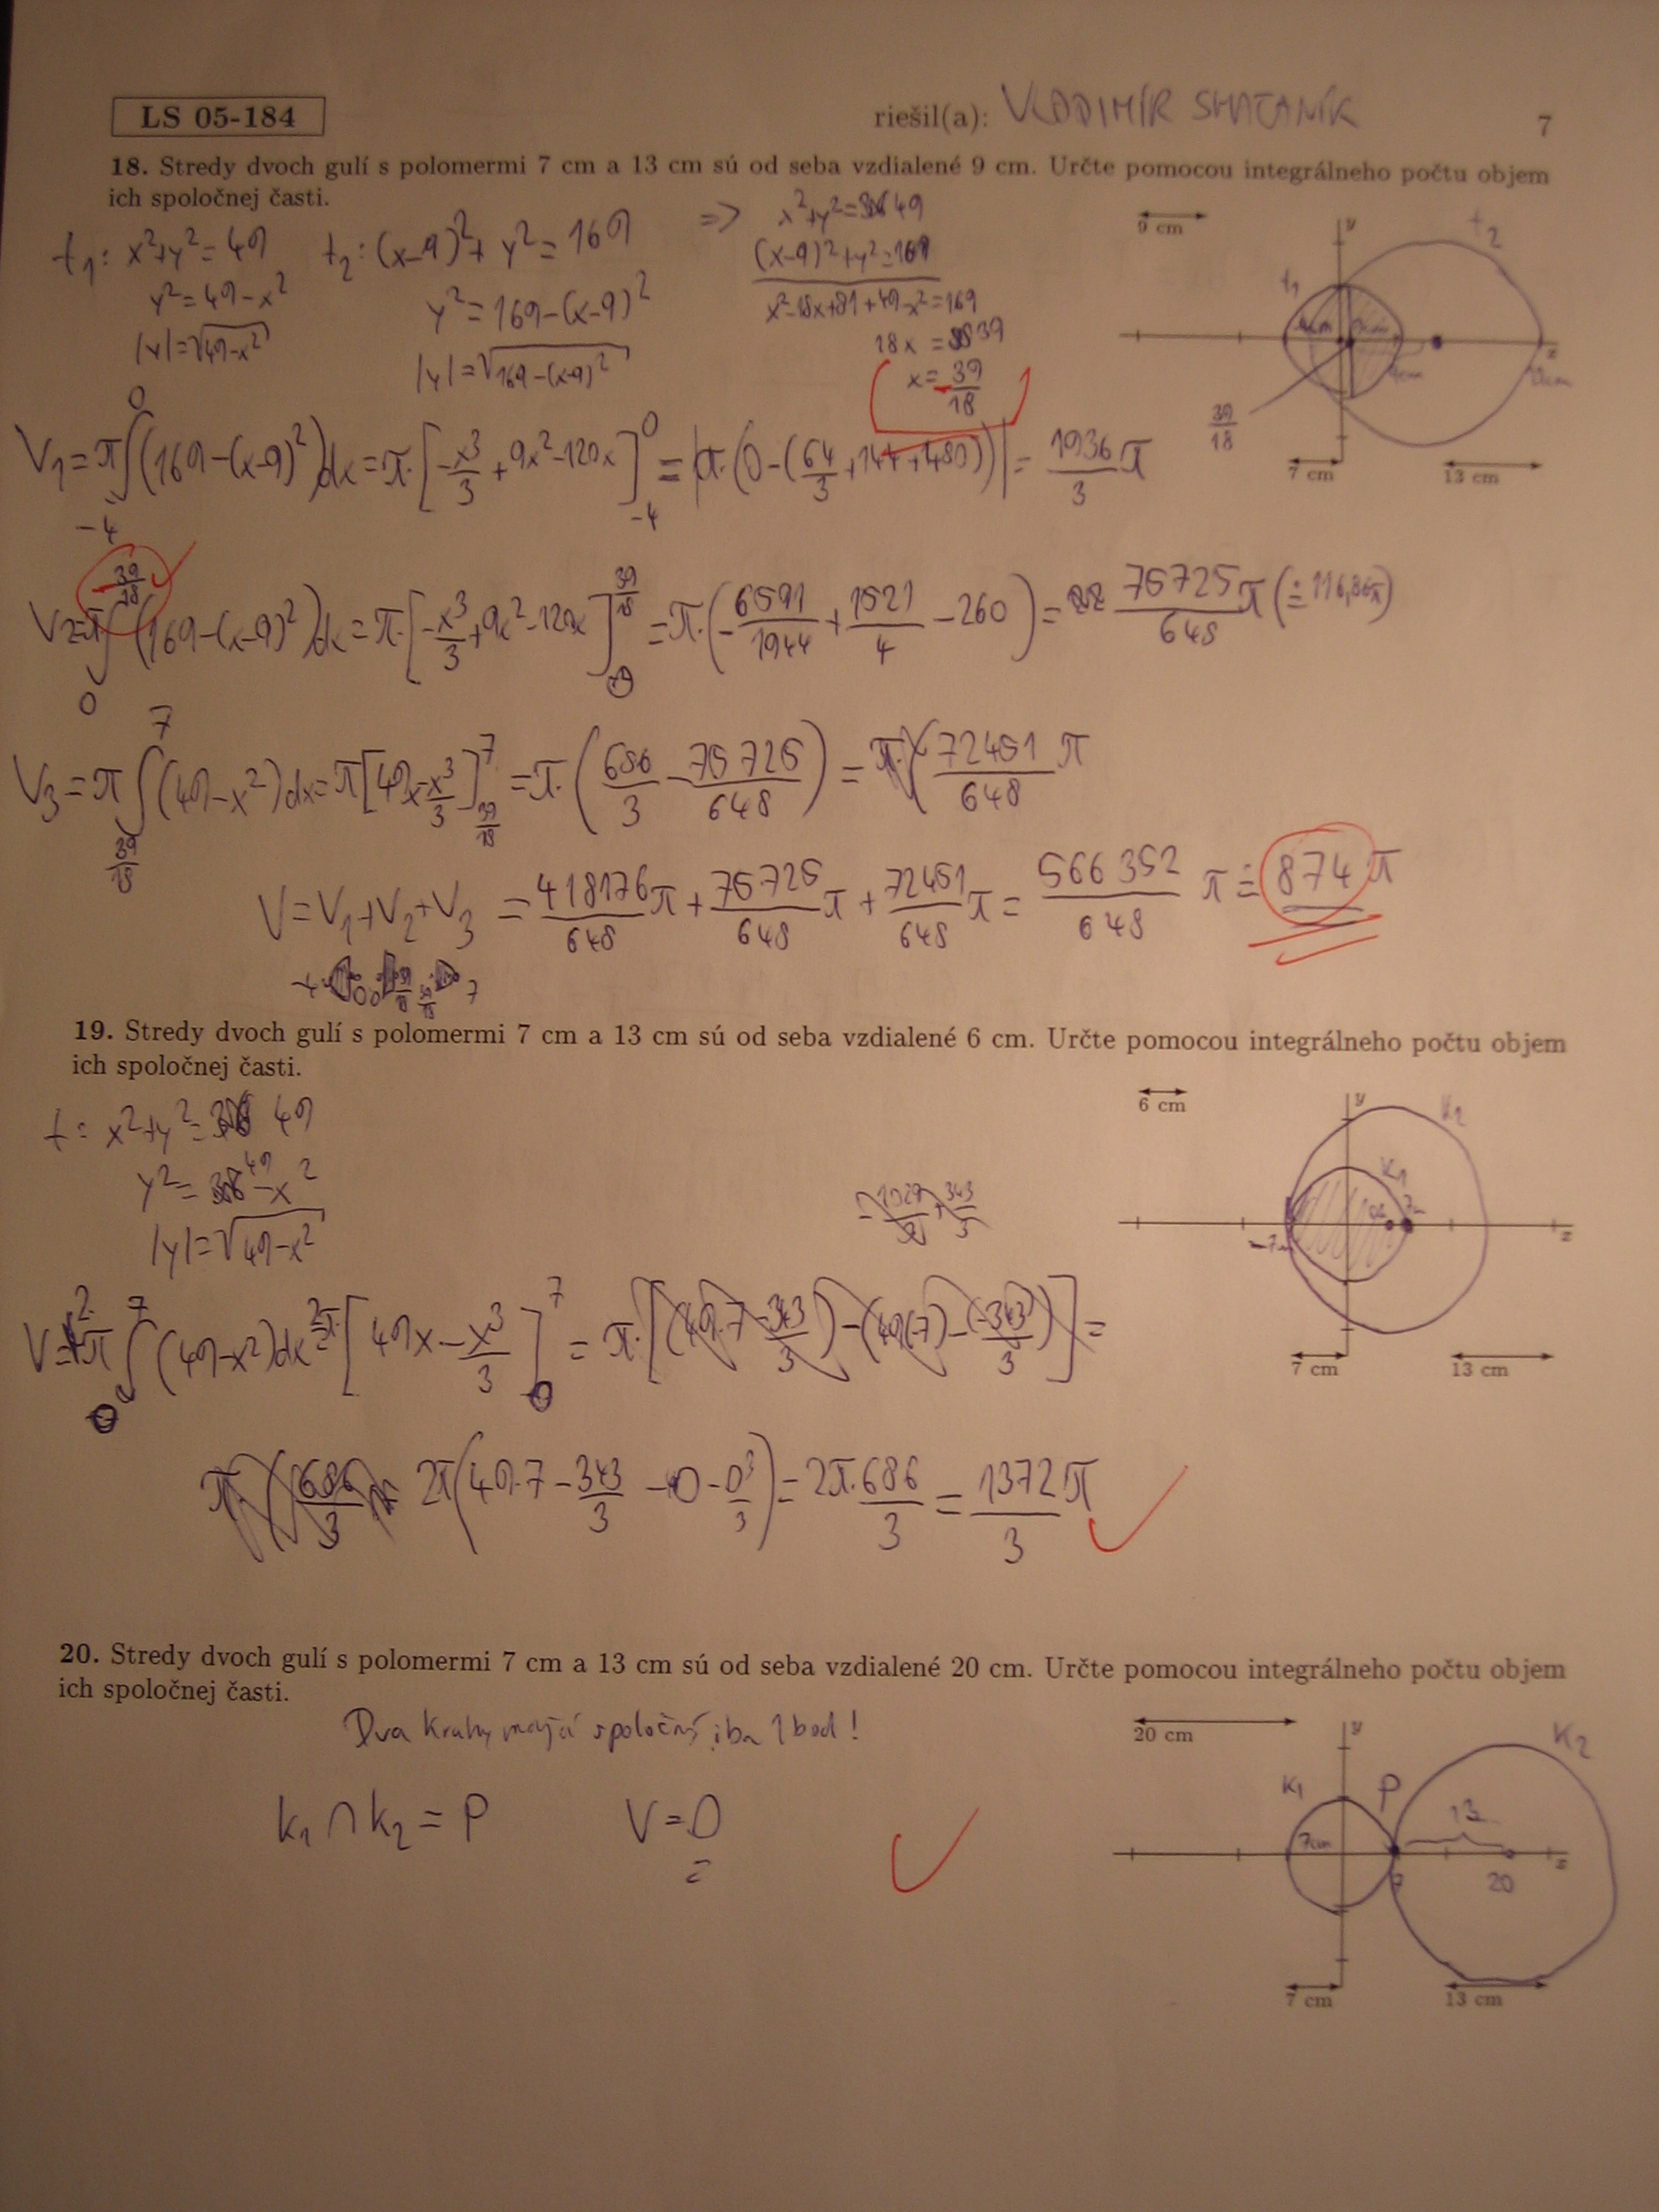 LS 05-184
riešil(a): VLADIMÍR SMATANÍK 7
18. Stredy dvoch gulí s polomermi 7 cm a 13 cm sú od seba vzdialené 9 cm. Určte pomocou integrálneho počtu objem
ich spoločnej časti.
t₁: x²+y²=49 t₂: (x-9)²+y²=169 => x²+y²=49
y²=49-x² y²=169-(x-9)² (x-9)²+y²=169
|y|=√(49-x²) |y|=√(169-(x-9)²) x²-18x+81+49-x²=169
18x = 39
x=-39/18
9 cm
t₁
t₂
39/18
7 cm 13 cm
V₁=π∫₋₄⁰(169-(x-9)²)dx=π·[-x³/3+9x²-120x]₋₄⁰=|π·(0-(64/3+144+480))|=1936/3 π
V₂=π∫₀^(-39/18)(169-(x-9)²)dx=π·[-x³/3+9x²-120x]₀^(39/18)=π·(-6591/1944+1521/4-260)=75725/648 π(≐116,86π)
V₃=π∫_(39/18)^7(49-x²)dx=π[49x-x³/3]_(39/18)^7=π·(686/3-75725/648)=72451/648 π
V=V₁+V₂+V₃=418176/648 π+75725/648 π+72451/648 π=566352/648 π≐874π
19. Stredy dvoch gulí s polomermi 7 cm a 13 cm sú od seba vzdialené 6 cm. Určte pomocou integrálneho počtu objem
ich spoločnej časti.
t: x²+y²=49
y²=49-x²
|y|=√(49-x²)
6 cm
y
k₂
k₁
-7
x
7 cm 13 cm
V=2·π∫₀⁷(49-x²)dx=2π·[49x-x³/3]₀⁷=π·[(49·7-343/3)-(49(-7)-(-343)/3)]=
2π(49·7-343/3-0-0³/3)=2π·686/3=1372/3 π
20. Stredy dvoch gulí s polomermi 7 cm a 13 cm sú od seba vzdialené 20 cm. Určte pomocou integrálneho počtu objem
ich spoločnej časti.
Dva kruhy majú spoločný iba 1 bod!
k₁∩k₂=P V=0
20 cm
y
k₂
k₁
P
13
7cm
x
20
7 cm 13 cm